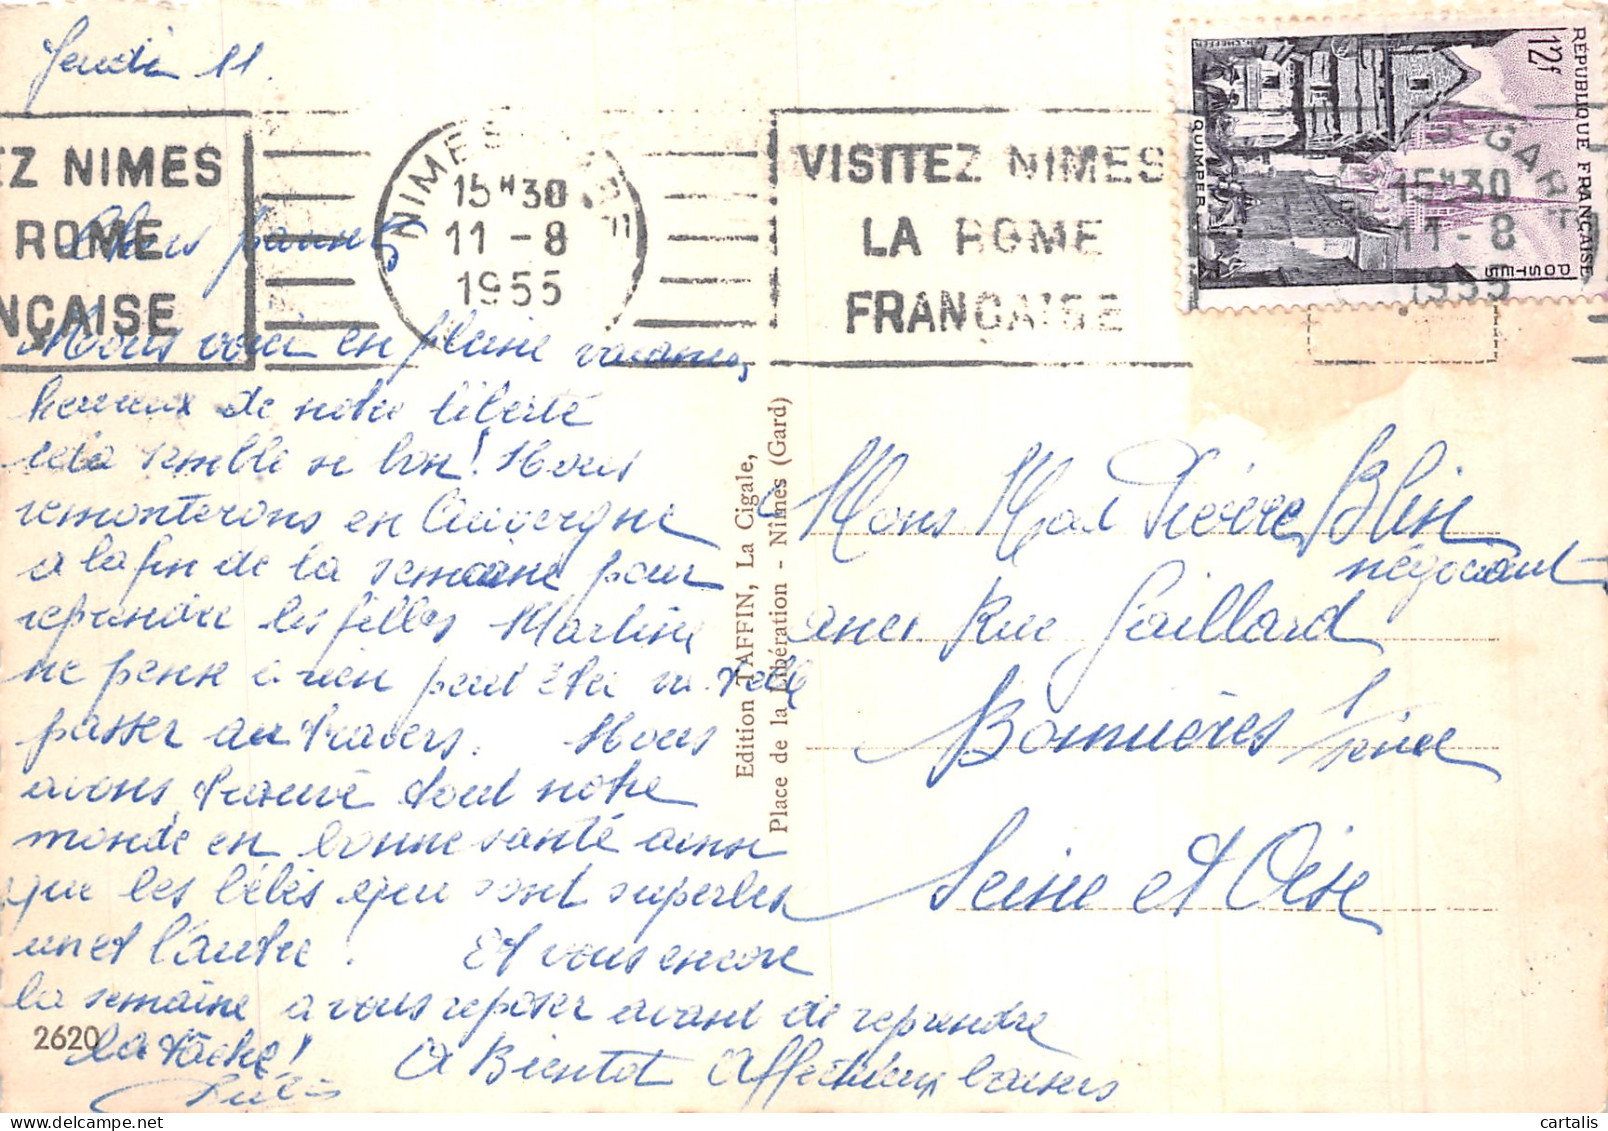 Jeudi 11.
EZ NIMES
ROME
NÇAISE
NIMES
15H30
11-8
1955
VISITEZ NIMES
LA ROME
FRANÇAISE
GARE
15H30
11-8
1955
RÉPUBLIQUE FRANÇAISE
12f
POSTES
QUIMPER
Chers
Nous voici en pleine vacances,
heureux de notre liberté
cela semble si bon! Nous
remonterons en Auvergne
a la fin de la semaine pour
reprendre les filles Martine
ne pense a rien peut être va-t-elle
passer au travers. Nous
avons trouvé tout notre
monde en bonne santé ainsi
que les bébés qui sont superbes
un et l'autre! Et vous encore
la semaine a vous reposer avant de reprendre
la tâche! A Bientot Affectueux baisers
2620
Edition TAFFIN, La Cigale,
Place de la Libération - Nîmes (Gard)
Mons Mad Pierre Blin
négociant
anci Rue Gaillard
Bonnières s/ Seine
Seine et Oise
cartalis
www.delcampe.net